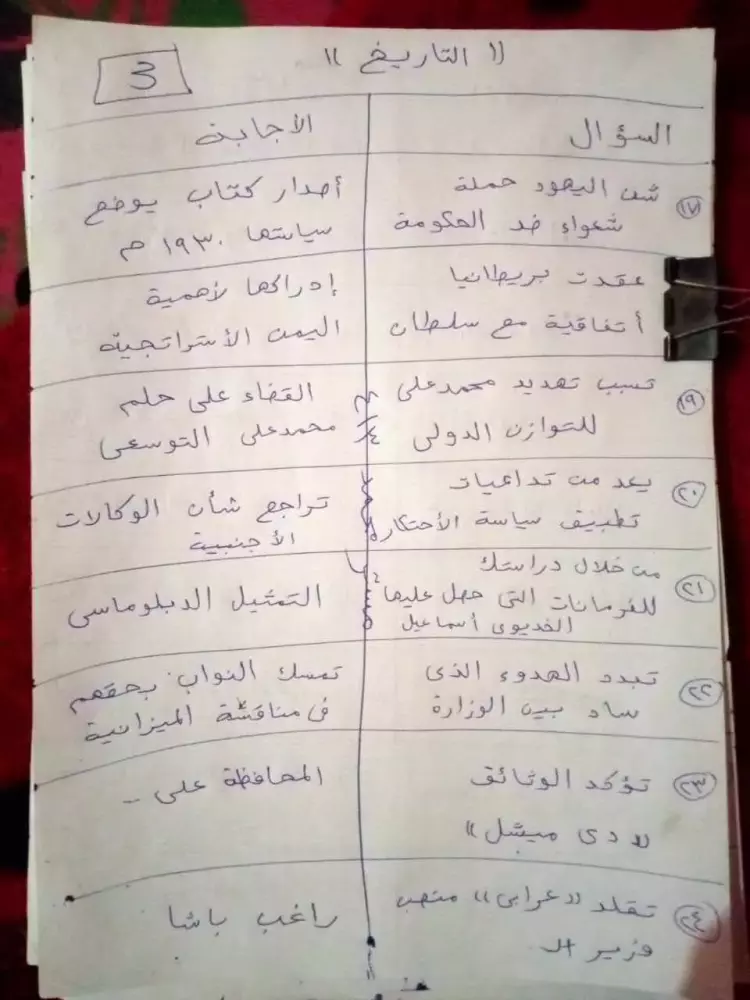 (( التاريخ ))
3
السؤال
الأجابة
١٧
شن اليهود حملة
شعواء ضد الحكومة
أصدار كتاب يوضح
سياستها ١٩٣٠ م
عقدت بريطانيا
أتفاقية مع سلطان
إدراكها لأهمية
اليمن الأستراتجية
١٩
تسبب تهديد محمد على
للتوازن الدولى
القضاء على حلم
محمد على التوسعى
٢٠
يعد من تداعيات
تطبيق سياسة الأحتكار
تراجع شأن الوكالات
الأجنبية
٢١
من خلال دراستك
للفرمانات التى حصل عليها
الخديوى أسماعيل
التمثيل الدبلوماسى
٢٢
تبدد الهدوء الذى
ساد بين الوزارة
تمسك النواب بحقهم
فى مناقشة الميزانية
٢٣
تؤكد الوثائق
لا دى ميشل ))
المحافظة على ..
٢٤
تقلد (( عرابى )) منصب
وزير الـ
راغب باشا